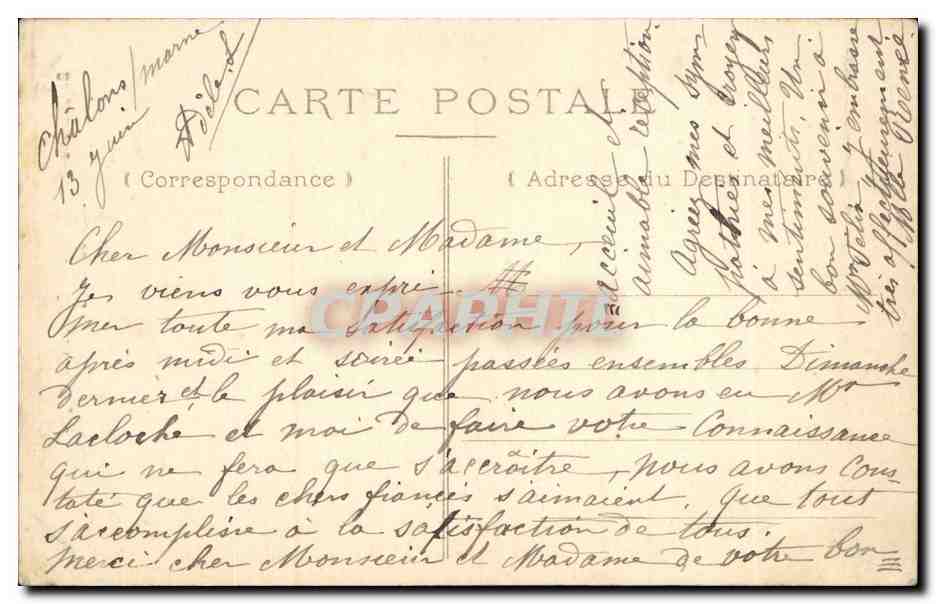 Châlons/marne
13 Juin
Adèle
CARTE POSTALE
(Correspondance) (Adresse du Destinataire)
Cher Monsieur et Madame,
Je viens vous expri-
mer toute ma satisfaction pour la bonne
après midi et soirée passées ensembles Dimanche
dernier et le plaisir que nous avons eu Mr
Lacloche et moi de faire votre Connaissance
qui ne fera que s'accroître, nous avons Cons-
taté que les chers fiancés s'aimaient, que tout
s'accomplisse à la satisfaction de tous.
Merci cher Monsieur et Madame de votre bon
=accceuil et
aimable réception
Agréez mes sym-
pathies et croyez
à mes meilleurs
sentiments. Un
bon souvenir à
Mr Délia j'embrasse
très affectueusement
Mlle Irenée
CPAPHIL